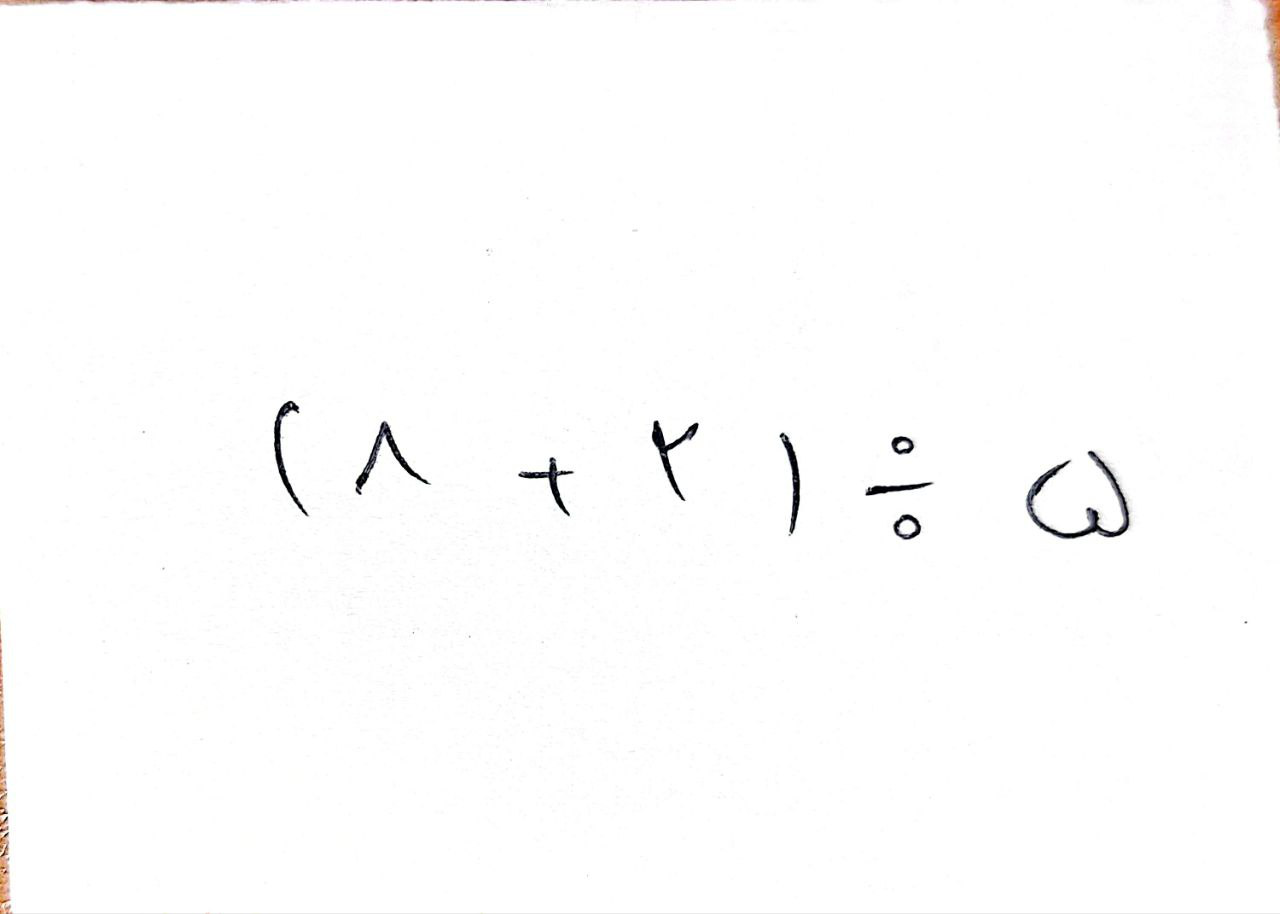 (۸ + ۲) ÷ ۵